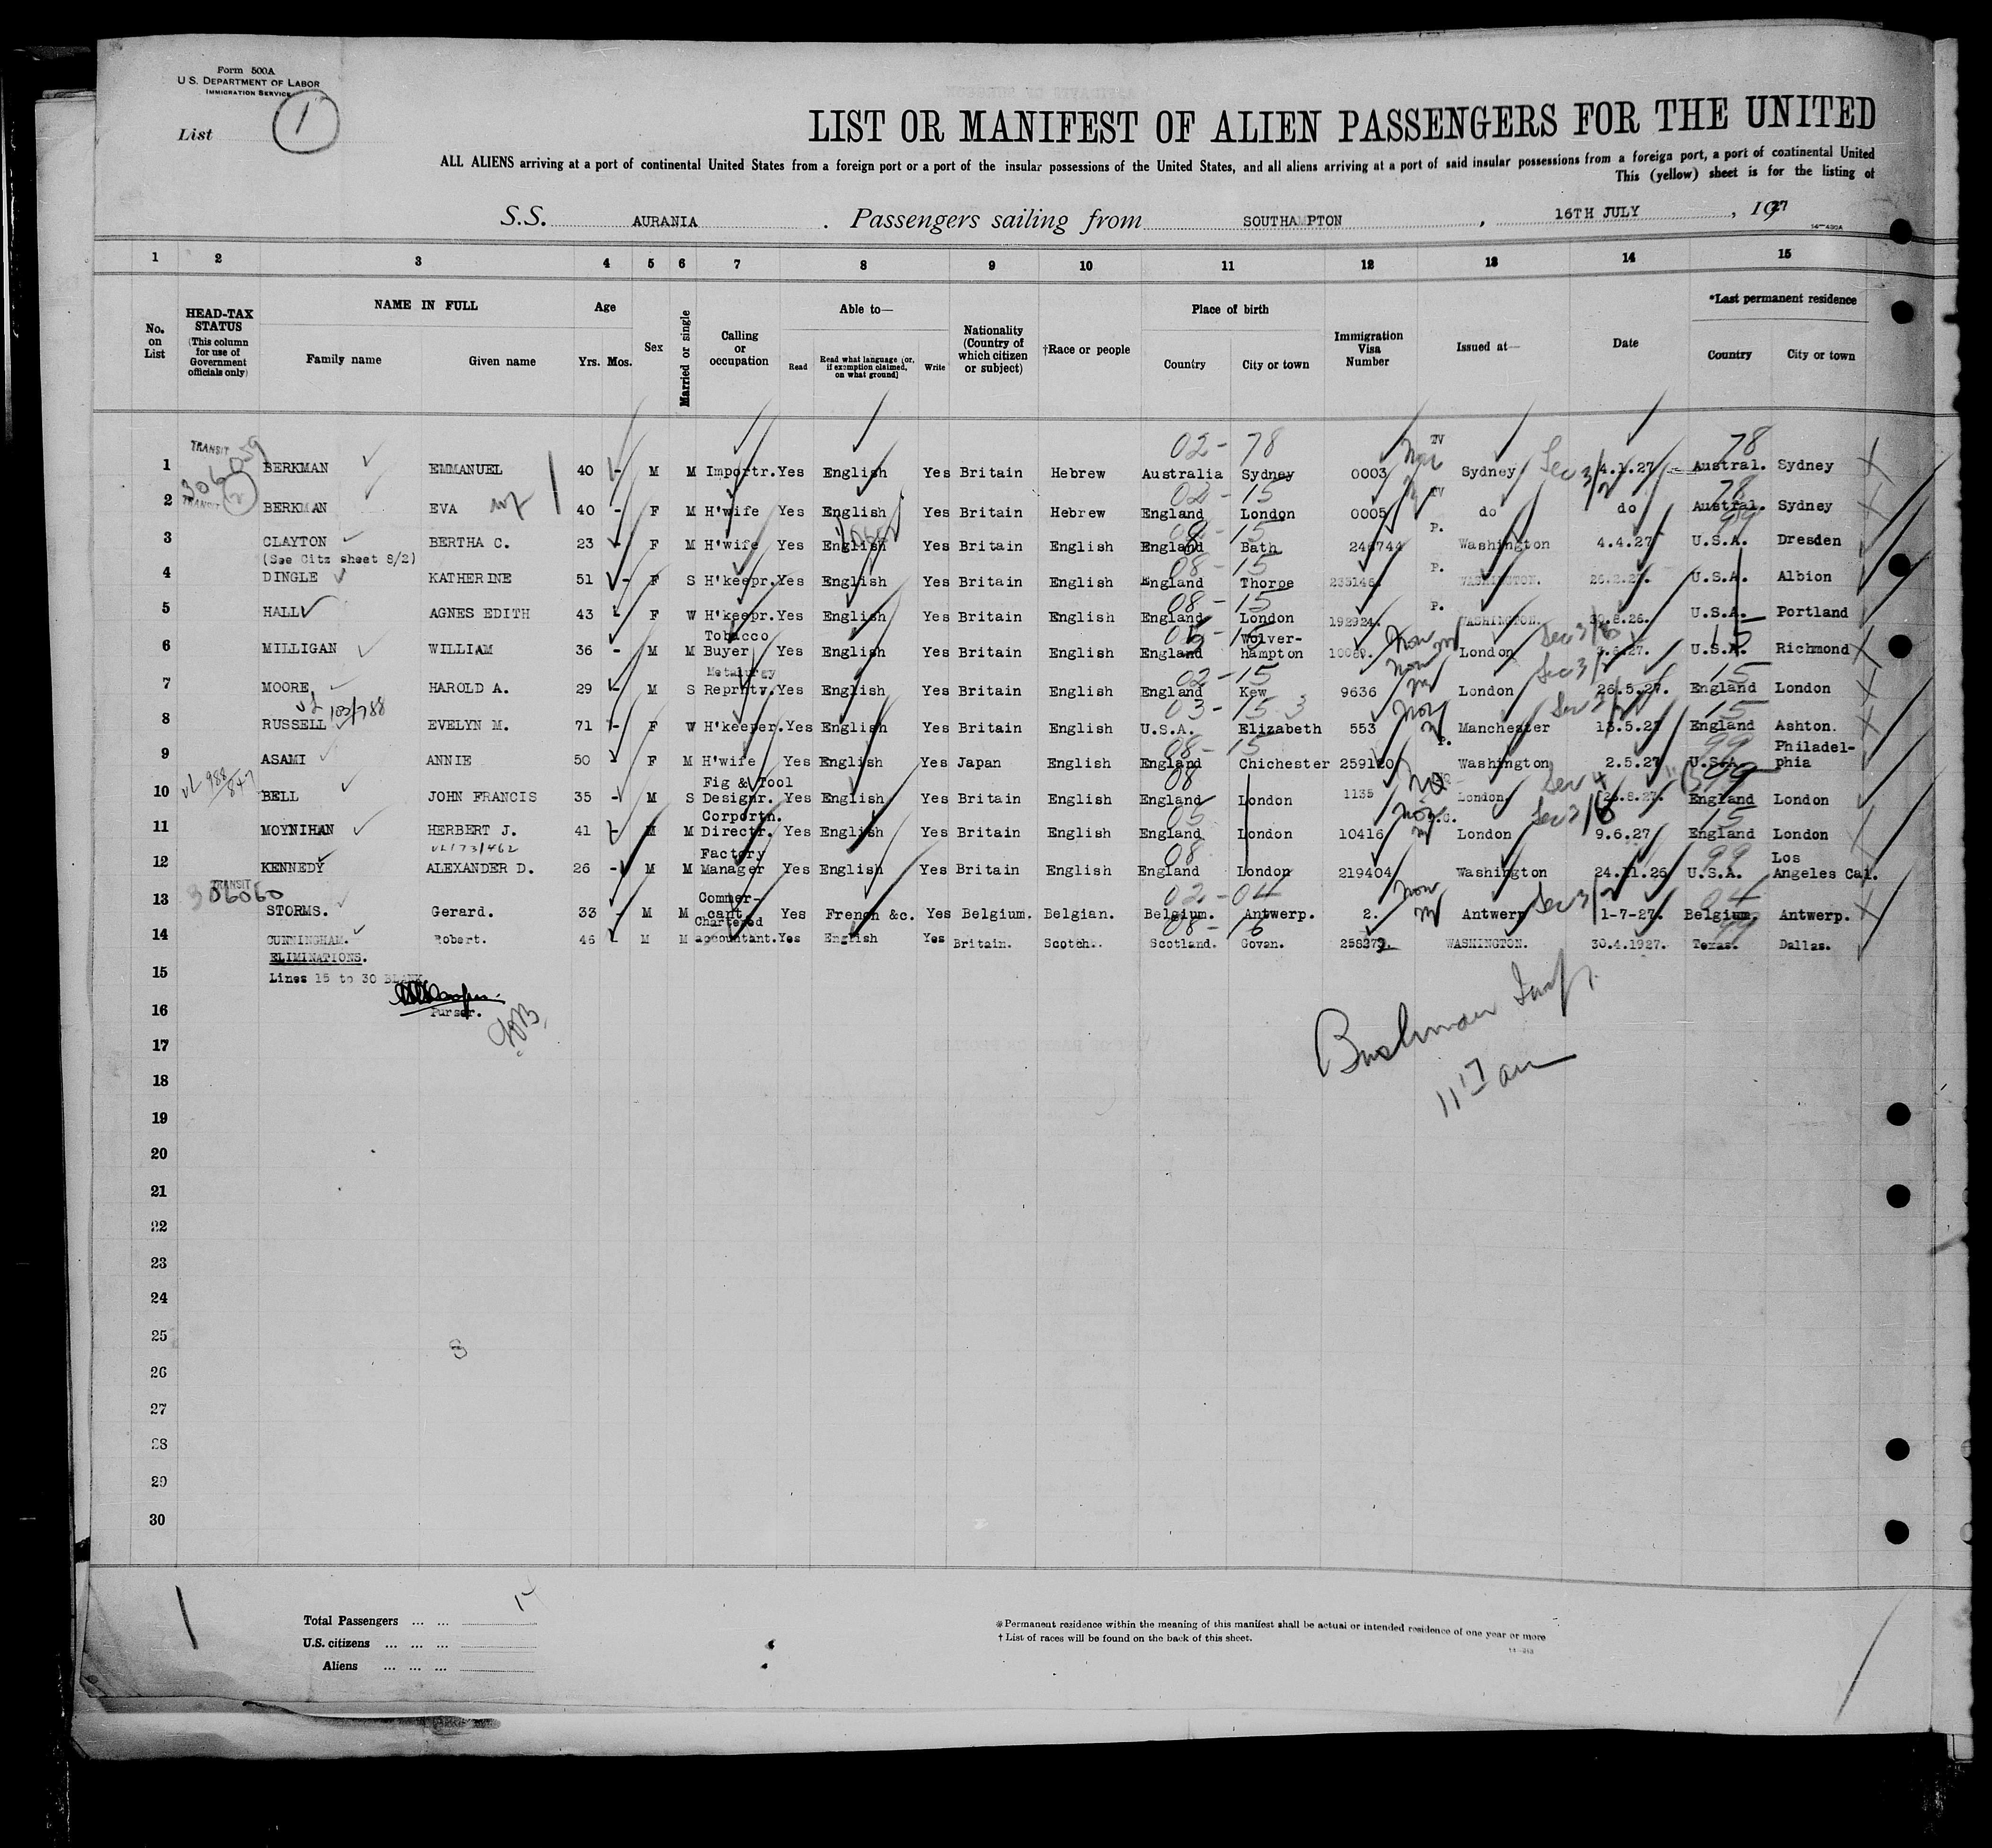 Form 500A
U.S. DEPARTMENT OF LABOR
IMMIGRATION SERVICE
List 1
LIST OR MANIFEST OF ALIEN PASSENGERS FOR THE UNITED
ALL ALIENS arriving at a port of continental United States from a foreign port or a port of the insular possessions of the United States, and all aliens arriving at a port of said insular possessions from a foreign port, a port of continental United
This (yellow) sheet is for the listing of
S.S. AURANIA . Passengers sailing from SOUTHAMPTON , 16TH JULY , 1927
1 2 3 4 5 6 7 8 9 10 11 12 13 14 15
No. on List
HEAD-TAX STATUS (This column for use of Government officials only)
NAME IN FULL
Family name Given name
Age
Yrs. Mos.
Sex
Married or single
Calling or occupation
Able to—
Read
Read what language (or, if exemption claimed, on what ground)
Write
Nationality (Country of which citizen or subject)
†Race or people
Place of birth
Country City or town
Immigration Visa Number
Issued at—
Date
*Last permanent residence
Country City or town
TRANSIT 02-78 TV 78
1 BERKMAN EMMANUEL 40 - M M Importr. Yes English Yes Britain Hebrew Australia Sydney 0003 Sydney 4.1.27 Austral. Sydney
TRANSIT 02-15 TV 78
2 BERKMAN EVA 40 - F M H'wife Yes English Yes Britain Hebrew England London 0005 do do Austral. Sydney
P.
3 CLAYTON BERTHA C. 23 - F M H'wife Yes English Yes Britain English England Bath 248744 Washington 4.4.27 U.S.A. Dresden
(See Citz sheet 8/2)
08-15 P.
4 DINGLE KATHERINE 51 - F S H'keepr. Yes English Yes Britain English England Thorpe 235146. WASHINGTON. 26.2.27. U.S.A. Albion
08-15 P.
5 HALL AGNES EDITH 43 - F W H'keepr. Yes English Yes Britain English England London 192924. WASHINGTON. 30.8.26. U.S.A. Portland
6 MILLIGAN WILLIAM 36 - M M Tobacco Buyer Yes English Yes Britain English England Wolverhampton London U.S.A. Richmond
02-15 15
7 MOORE HAROLD A. 29 - M S Metalurgy Reprntv. Yes English Yes Britain English England Kew 9636 London 26.5.27. England London
03-15 15
8 RUSSELL EVELYN M. 71 - F W H'keeper. Yes English Yes Britain English U.S.A. Elizabeth 553 Manchester 13.5.27 England Ashton.
08-15 P. 99
9 ASAMI ANNIE 50 F M H'wife Yes English Yes Japan English England Chichester 259120 Washington 2.5.27 U.S.A. Philadelphia
08 99
10 BELL JOHN FRANCIS 35 - M S Fig & Tool Designr. Yes English Yes Britain English England London 1135 London. England London
05 15
11 MOYNIHAN HERBERT J. 41 - M M Corporth. Directr. Yes English Yes Britain English England London 10416 London 9.6.27 England London
08 99
12 KENNEDY ALEXANDER D. 26 - M M Factory Manager Yes English Yes Britain English England London 219404 Washington 24.11.26 U.S.A. Los Angeles Cal.
TRANSIT 306060 02-04 04
13 STORMS. Gerard. 33 - M M Commercant. Yes French &c. Yes Belgium. Belgian. Belgium. Antwerp. 2. Antwerp 1-7-27. Belgium. Antwerp.
08-16 99
14 CUNNINGHAM. Robert. 46 M M Chartered accountant. Yes English Yes Britain. Scotch. Scotland. Govan. 258272 WASHINGTON. 30.4.1927. Texas. Dallas.
ELIMINATIONS.
15 Lines 15 to 30 BLANK.
16 Purser.
17
18
19
20
21
22
23
24
25
26
27
28
29
30
Total Passengers ... ...
U.S. citizens ... ... ...
Aliens ... ... ...
*Permanent residence within the meaning of this manifest shall be actual or intended residence of one year or more
† List of races will be found on the back of this sheet.